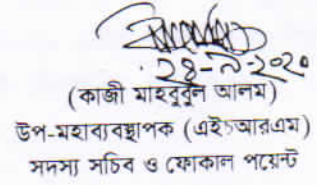 ২৪-৯-২০২০
(কাজী মাহবুবুল আলম)
উপ-মহাব্যবস্থাপক (এইচআরএম)
সদস্য সচিব ও ফোকাল পয়েন্ট